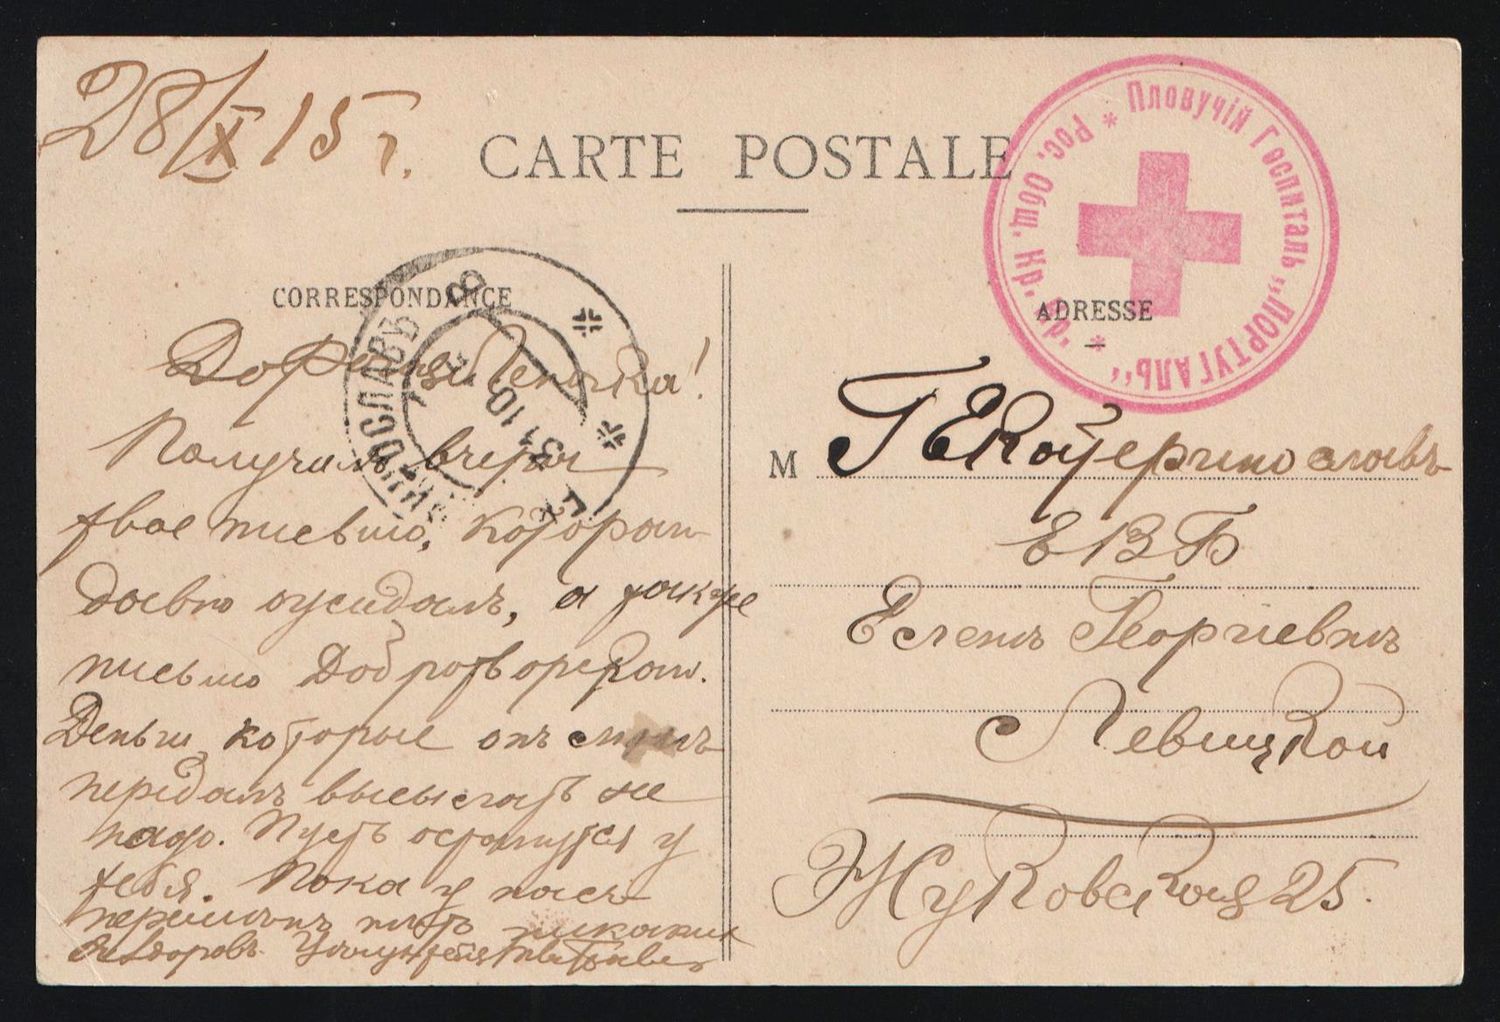 28/X 15 г.
CARTE POSTALE
Пловучій Госпиталь „Португаль“ * Рос. Общ. Кр. Кр. *
CORRESPONDANCE
ADRESSE
ОСЛАВЪ
31 10 15
Дорогая Леночка!
Получилъ вчера
твое письмо, которое
давно ожидалъ, а также
письмо Добротворской.
Деньги, которые онъ
передалъ высылать не
надо. Пусть останутся у
тебя. Пока у насъ
перемѣнъ нѣтъ никакихъ
Я здоровъ.
M Г Екатеринославъ
ЕВБ
Еленѣ Георгіевнѣ
Левицкой
Жуковская 25.